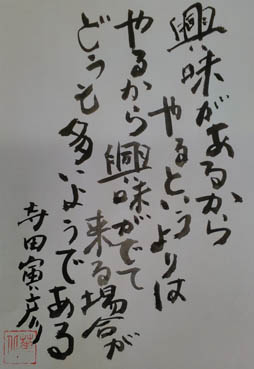 興味があるから
やるというよりは
やるから興味がでて
来る場合が
どうも多いようである
寺田寅彦